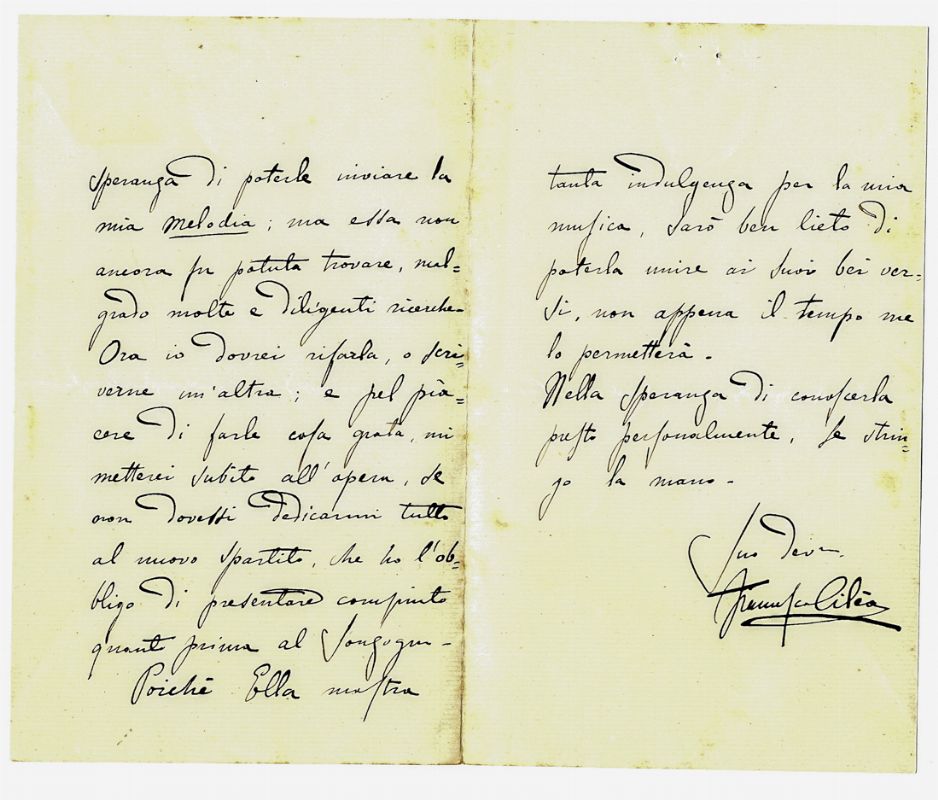 speranza di poterle inviare la
mia Melodia; ma essa non
ancora fu potuta trovare, mal=
grado molte e diligenti ricerche.
Ora io dovrei rifarla, o scri=
verne un'altra; e pel pia=
cere di farle cosa grata, mi
metterei subito all'opera, se
non dovessi dedicarmi tutto
al nuovo spartito, che ho l'ob=
bligo di presentare compiuto
quanto prima al Sonzogno -
Poichè Ella mostra
tanta indulgenza per la mia
musica, sarò ben lieto di
poterla unire ai suoi bei ver=
si, non appena il tempo me
lo permetterà -
Nella speranza di conoscerla
presto personalmente, Le strin=
go la mano -
Suo devm.
Francesco Cilèa